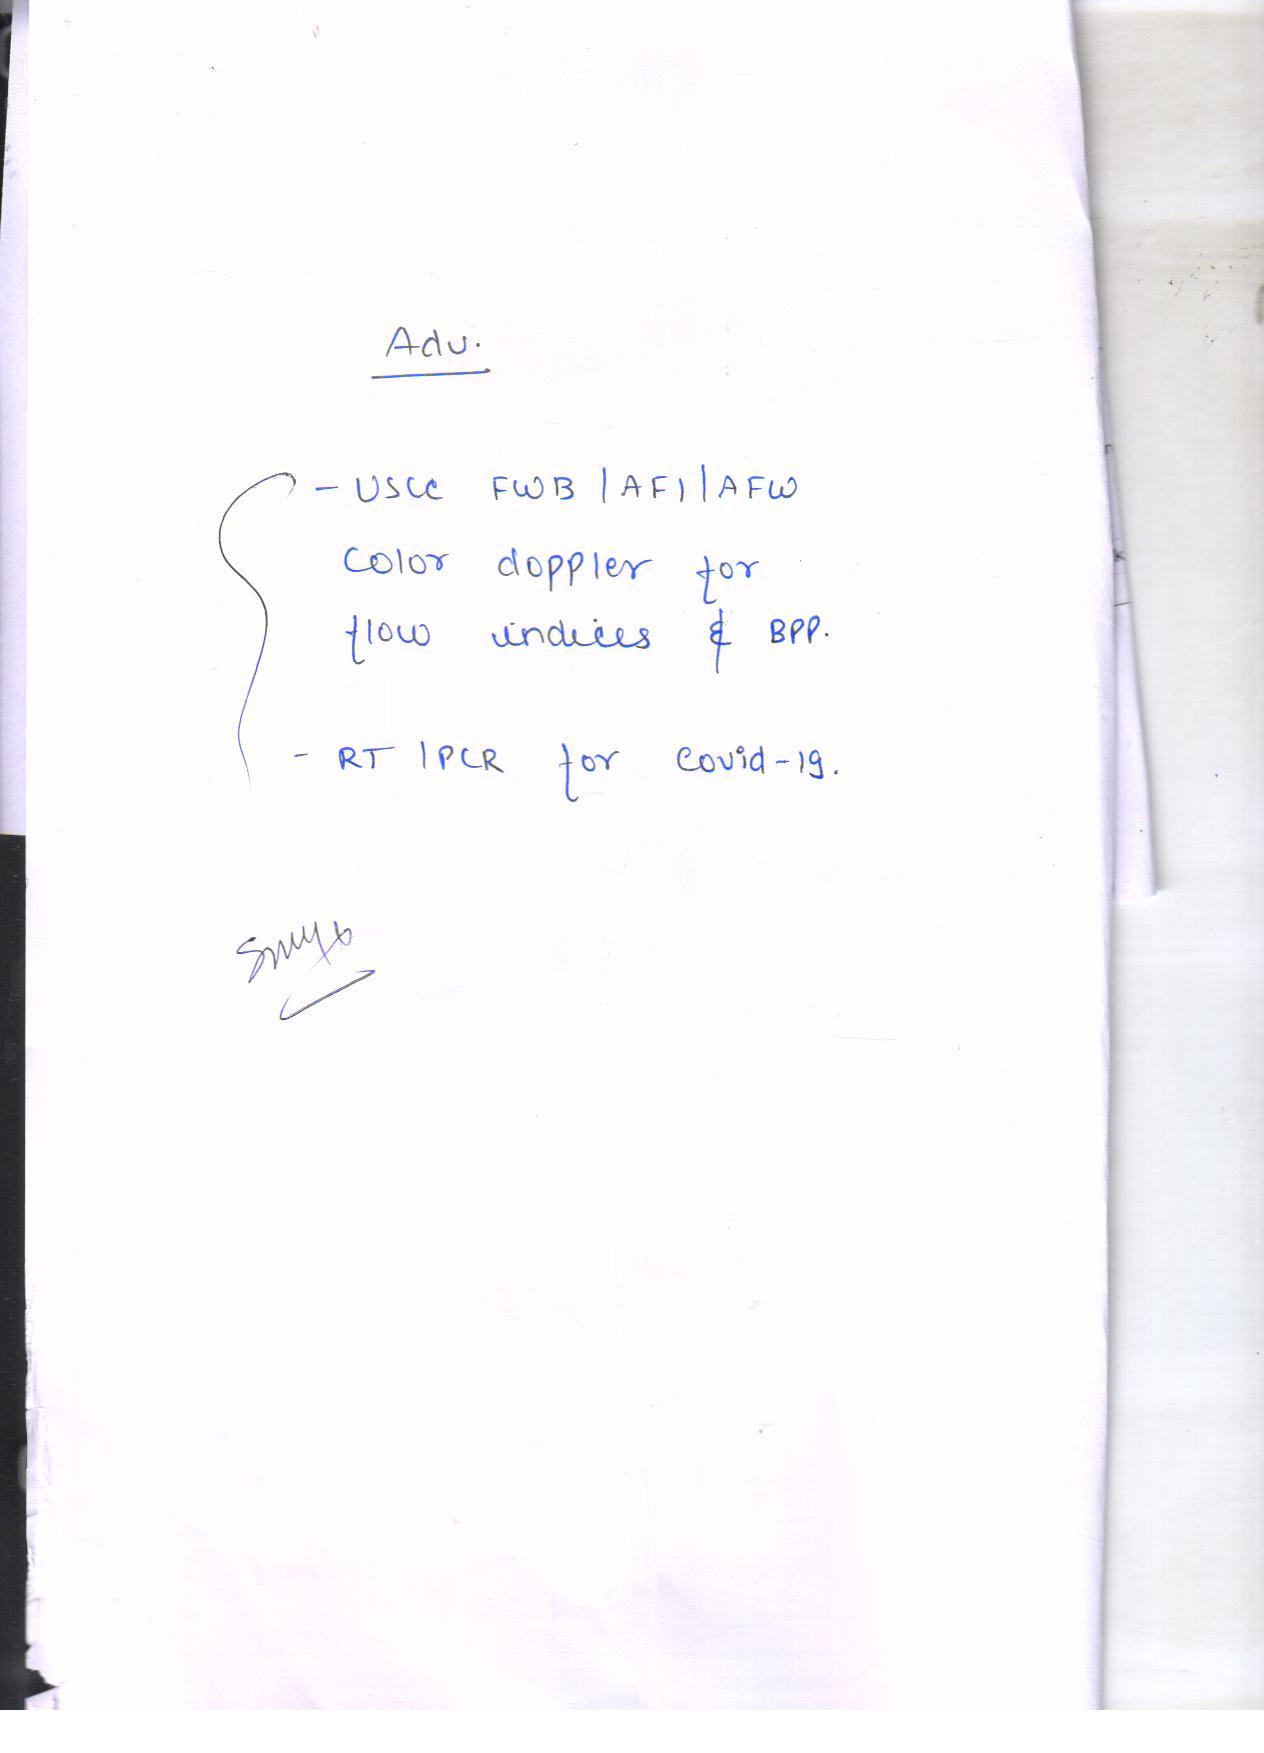 Adv.
- USG FWB | AFI | AFW
Color doppler for
flow indices & BPP.
- RT | PCR for Covid-19.